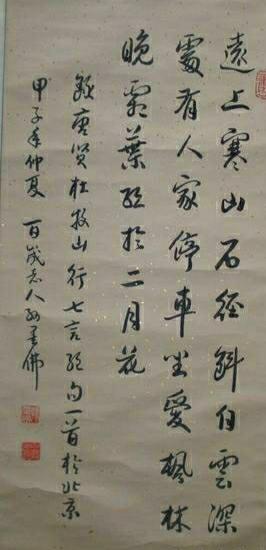 遠上寒山石徑斜白雲深
處有人家停車坐愛楓林
晚霜葉紅於二月花
錄唐賢杜牧山行七言絕句一首於北京
甲子年仲夏 百歲老人孫墨佛